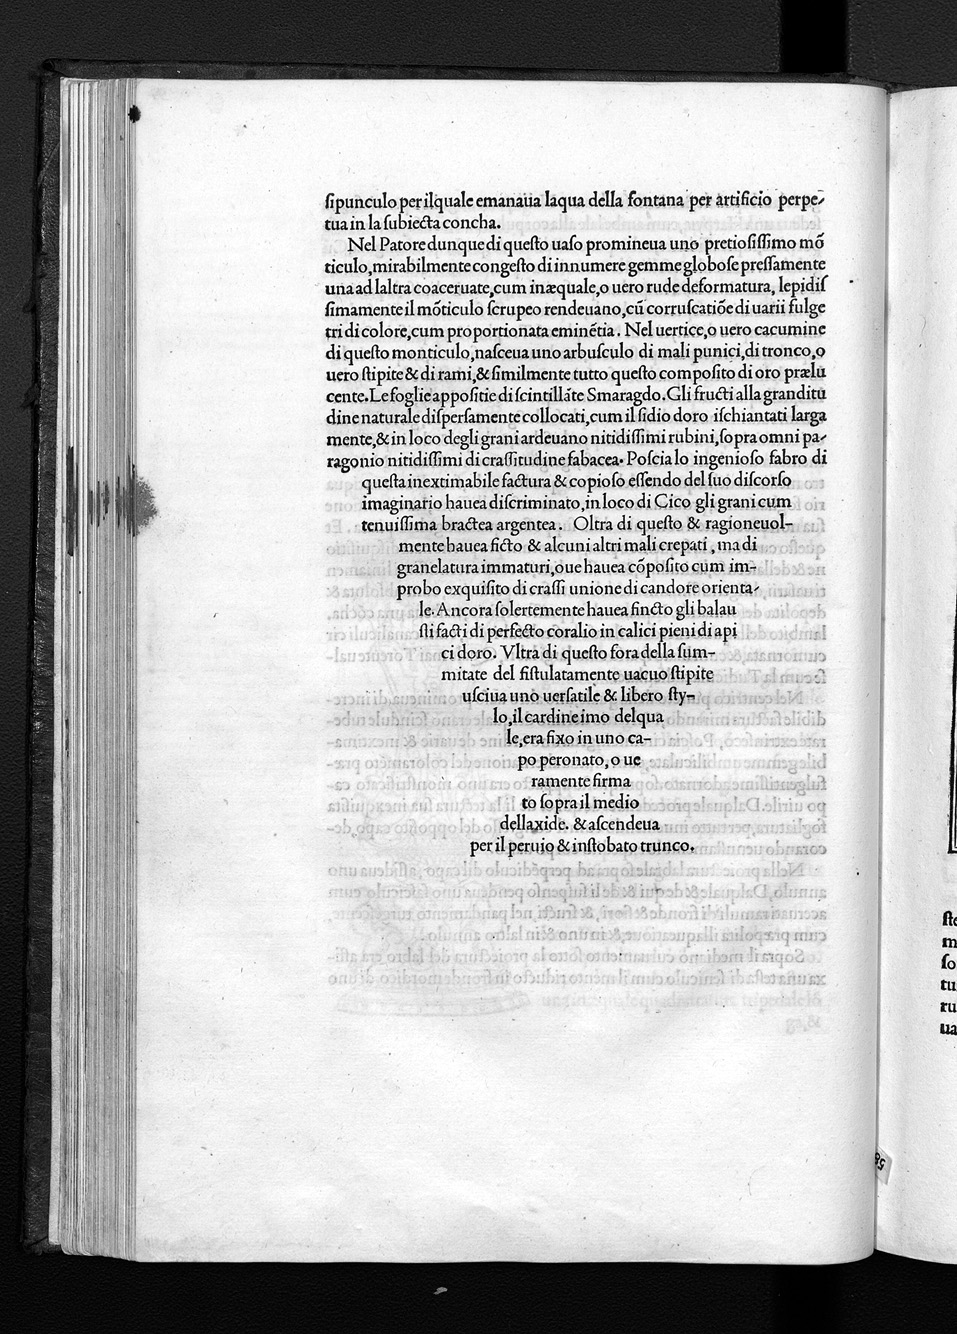 ſipunculo per ilquale emanaua laqua della fontana per artificio perpe⸗
tua in la ſubiecta concha.
Nel Patore dunque di queſto uaſo promineua uno pretioſiſſimo mõ
ticulo, mirabilmente congeſto di innumere gemme globoſe preſſamente
una ad laltra coaceruate, cum inæquale, o uero rude deformatura, lepidiſ
ſimamente il mõticulo ſcrupeo rendeuano, cũ corruſcatiõe di uarii fulge
tri di colore, cum proportionata eminẽtia. Nel uertice, o uero cacumine
di queſto monticulo, naſceua uno arbuſculo di mali punici, di tronco, o
uero ſtipite & di rami, & ſimilmente tutto queſto compoſito di oro prælu
cente. Le foglie appoſitie di ſcintillãte Smaragdo. Gli fructi alla granditu
dine naturale diſperſamente collocati, cum il ſidio doro iſchiantati larga
mente, & in loco degli grani ardeuano nitidiſſimi rubini, ſopra omni pa⸗
ragonio nitidiſſimi di craſſitudine fabacea. Poſcia lo ingenioſo fabro di
queſta inextimabile factura & copioſo eſſendo del ſuo diſcorſo
imaginario hauea diſcriminato, in loco di Cico gli grani cum
tenuiſſima bractea argentea. Oltra di queſto & ragioneuol-
mente hauea ficto & alcuni altri mali crepati, ma di
granelatura immaturi, oue hauea cõpoſito cum im-
probo exquiſito di craſſi unione di candore orienta⸗
le. Ancora ſolertemente hauea fincto gli balau
ſti facti di perfecto coralio in calici pieni di api
ci doro. Vltra di queſto fora della ſum-
mitate del fiſtulatamente uacuo ſtipite
uſciua uno uerſatile & libero ſty-
lo, il cardine imo delqua
le, era fixo in uno ca-
po peronato, o ue
ramente firma
to ſopra il medio
dellaxide. & aſcendeua
per il peruio & inſtobato trunco.
58
ſte
m
ſo
tu
ru
ua